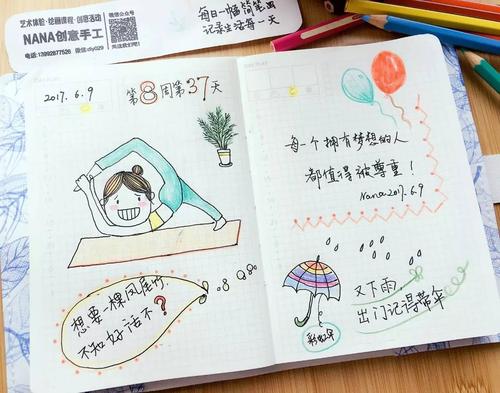 艺术体验·绘画课程·创意活动
NANA创意手工
电话:13992877526 微信:cly029
微信公众号
每日一幅简笔画
记录生活每一天
2017.6.9
第8周第37天
想要一棵凤尾竹
不知好活不?
每一个拥有梦想的人
都值得被尊重!
Nana2017.6.9
又下雨,
出门记得带伞
彩虹伞